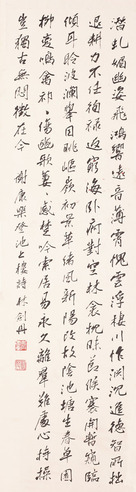 潛虬媚幽姿飛鴻響遠音薄霄愧雲浮棲川怍淵沉進德智所拙
退耕力不任徇祿返窮海卧痾對空林衾枕昧節候褰開暫窺臨
傾耳聆波瀾舉目眺嶇嶔初景革緒風新陽改故陰池塘生春草園
柳變鳴禽祁祁傷豳歌萋萋感楚吟索居易永久離群難處心持操
豈獨古無悶徵在今 謝康樂登池上樓詩 林劍丹